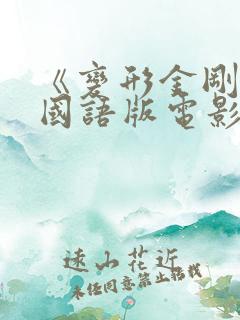 《變形金剛
國語版電影
遠山花近
未经同意禁止转载